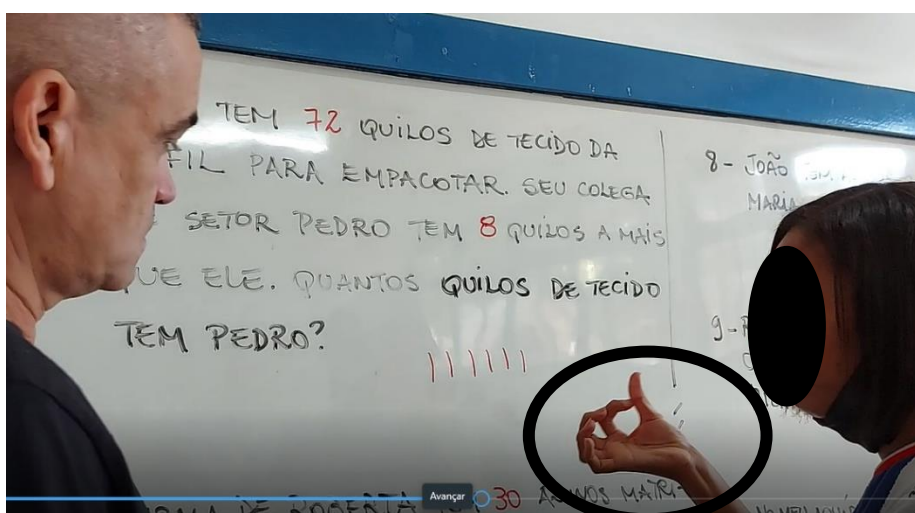 TEM 72 QUILOS DE TECIDO DA
FIL PARA EMPACOTAR. SEU COLEGA
SETOR PEDRO TEM 8 QUILOS A MAIS
QUE ELE. QUANTOS QUILOS DE TECIDO
TEM PEDRO?
8 - JOÃO
MARIA
9 -
Avançar
DE ROBERTA 30 ALUNOS MATRI-